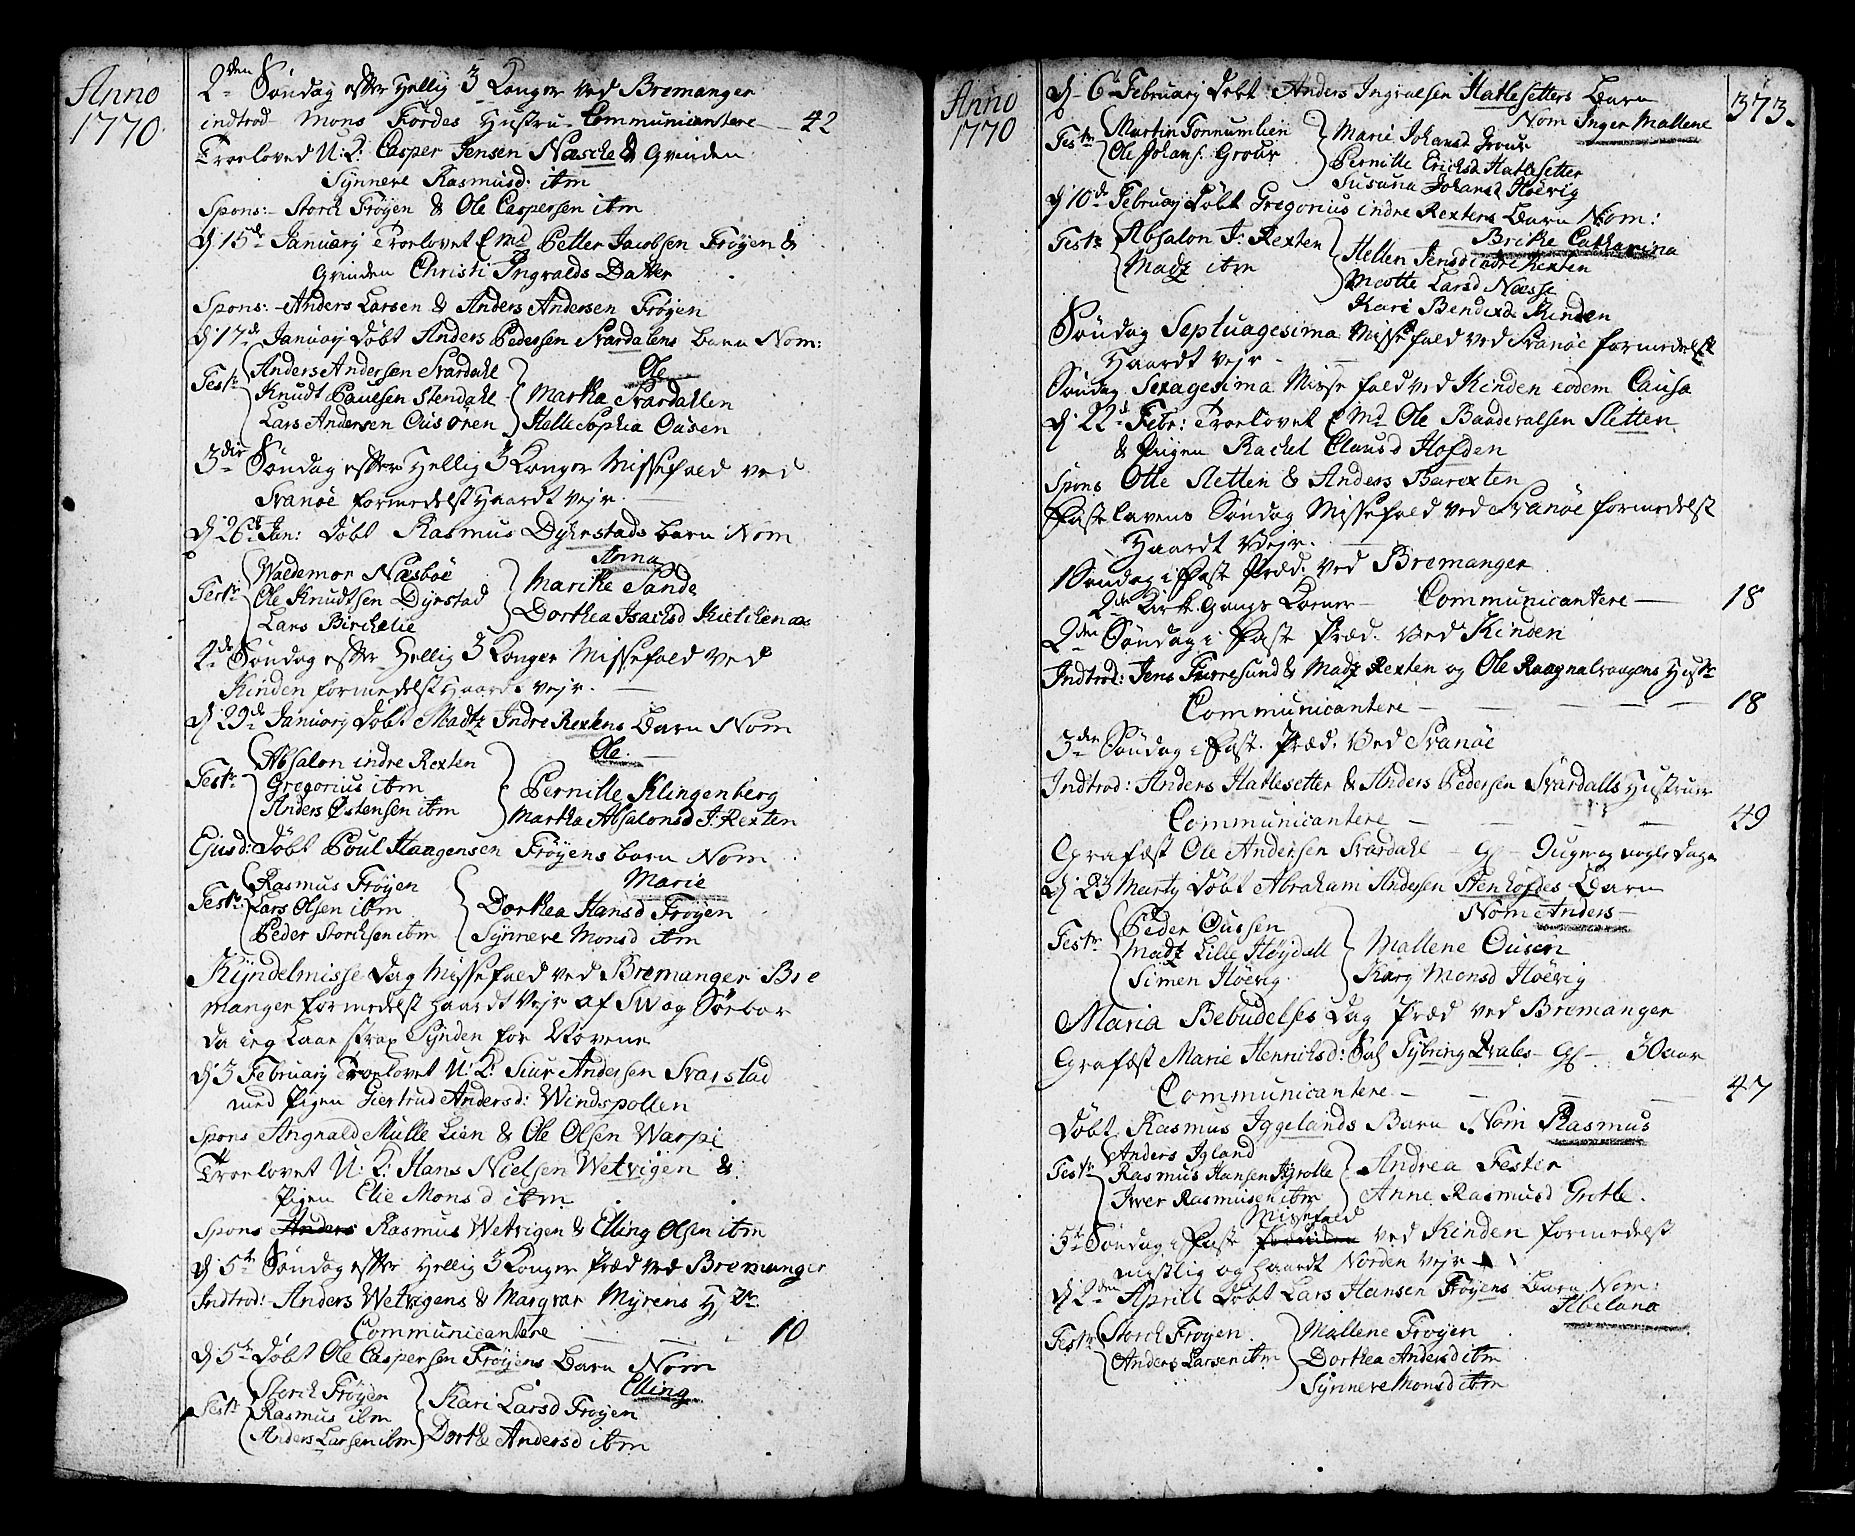 Anno
1770
2den Søndag efter Hellig 3 Konger ved Bremanger
indtrod Mons Førdes Hustru - Communicantere - 42
Troeloved U: K: Casper Jensen Næsche & Qvinden
Synneve Rasmusd: ibm
Spons: - Storck Frøyen & Ole Caspersen ibm
d 15de January Troelovet E md Petter Jacobsen Frøyen &
Qvinden Christi Ingvalds Datter
Spons: - Anders Larsen & Anders Andersen Frøyen
d 17de January Døbt Anders Pedersen Svardalens barn Nom:
Ole
Test: Anders Andersen Svardahl
Knudt Paulsen Stendahl
Lars Andersen Ousøren
Martha Svardallen
Helle Sophia Ousen
3die Søndag efter Hellig 3 Konger Missefald ved
Svanøe formedelst Haardt Vejr
d 26de Jan: Døbt Rasmus Dyrstads barn Nom
Anna
Test: Waldemor Næsbøe
Ole Knudtsen Dyrstad
Lars Birchelie
Marithe Sande
Dorthea Isachsd
4de Søndag efter Hellig 3 Konger Missefald ved
Kinden formedelst Haardt Vejr. -
d 29de January Døbt Madtz Indre Rextens Barn Nom
Ole
Test: Absalon indre Rexten
Gregorius ibm
Anders Østensen ibm
Pernille Klingenberg
Martha Absalonsd J: Rexten
Ejusd: Døbt Poul Haagensen Frøyens barn Nom
Marie
Test: Rasmus Frøyen
Lars Olsen ibm
Peder Storchsen ibm
Dorthea Hansd Frøyen
Synneve Monsd ibm
Kyndelmisse Dag Missefald ved Bremanger Bre
manger formedelst haardt Vejr af
da ieg Laae strax Synden for
d 3 February Troelovet U: K: Siur Andersen Svarstad
med Pigen Giertrud Andersd: Windspollen
Spons Angnald Mulle Lien & Ole Olsen Warpe
Troelovet U: K: Hans Nielsen Wetvigen &
Pigen Elie Monsd ibm
Spons Anders Rasmus Wetvigen & Elling Olsen ibm
d 5te Søndag efter Hellig 3 Konger Præd ved Bremanger
Indtrod: Anders Wetvigens & Margvar Myrens H
Communicantere - - - 10
d 5te Døbt Ole Caspersen Frøyens Barn Nom
Elling
Test: Storch Frøyen
Rasmus ibm
Anders Larsen ibm
Kari Larsd Frøyen
Dorthe Andersd ibm
Anno
1770
373.
d 6te February Døbt Anders Ingvalsen Hatlesetters Barn
Nom Inger Mallene
Test: Martin Tonnumlien
Ole Johans: Grour
Marie Johansd Grour
Pernille Erichsd Hatlesetter
Susana Johansd Høevig
d 10de February Døbt Gregorius indre Rextens Barn Nom:
Brithe Catharina
Test: Absalon J: Rexten
Madtz ibm
Hellen Jensd indre Rexten
Mette Larsd Næsse
Kari Bendixd Kinden
Søndag Septuagesima Missefald ved Svanøe formedelst
Haardt Vejr -
Søndag Sexagesima Missefald ved Kinden eodem Causa
d 22de Febr: Troelovet E Md Ole Baardvalsen Sletten
& Pigen Rachel Clausd Hofden
Spons Otte Sletten & Anders Barexten
Fastelavens Søndag Missefald ved Svanøe formedelst
Haardt Vejr.
1 Søndag i Fast Præd: ved Bremanger
Communicantere - 18
2den Søndag i Fast Præd: ved Kinden
Indtrod: Jens Furresund & Madtz Rexten og Ole Raagnalvaagens Hustr
Communicantere - - - - 18
3die Søndag i Fast. Præd. ved Svanøe
Indtrod: Anders Hatlesetter & Anders Pedersen Svardalls Hustruer
Communicantere - - - 49
Grafæst Ole Andersen Svardahl - Gl - 9 uger og nogle Dage
d 23 Marty Døbt Abraham Andersen Stenhofdes Barn
Nom: Anders -
Test: Peder Oussen
Madtz Lille Høydall
Simen Høevig
Mallene Ousen
Kary Monsd Høevig
Maria Bebudelses Dag Præd ved Bremanger
Grafæst Marie Henrichsd: Sal Tybring Qvales - Gl - 30 aar
Communicantere - - - 47
Døbt Rasmus Iggelands Barn Nom Rasmus
Test: Anders Igland
Rasmus Hansen Grotle
Iver Rasmusen ibm
Andrea Fester
Anne Rasmusd Grotle.
Missefald
5te Søndag i Fast ved Kinden formedelst
og haardt Norden Vejr -
d 2den Aprill Døbt Lars Hansen Frøyens Barn Nom:
Abelona
Test: Storch Frøyen
Anders Larsen ibm
Mallene Frøyen
Dorthea Andersd ibm
Synneve Monsd ibm